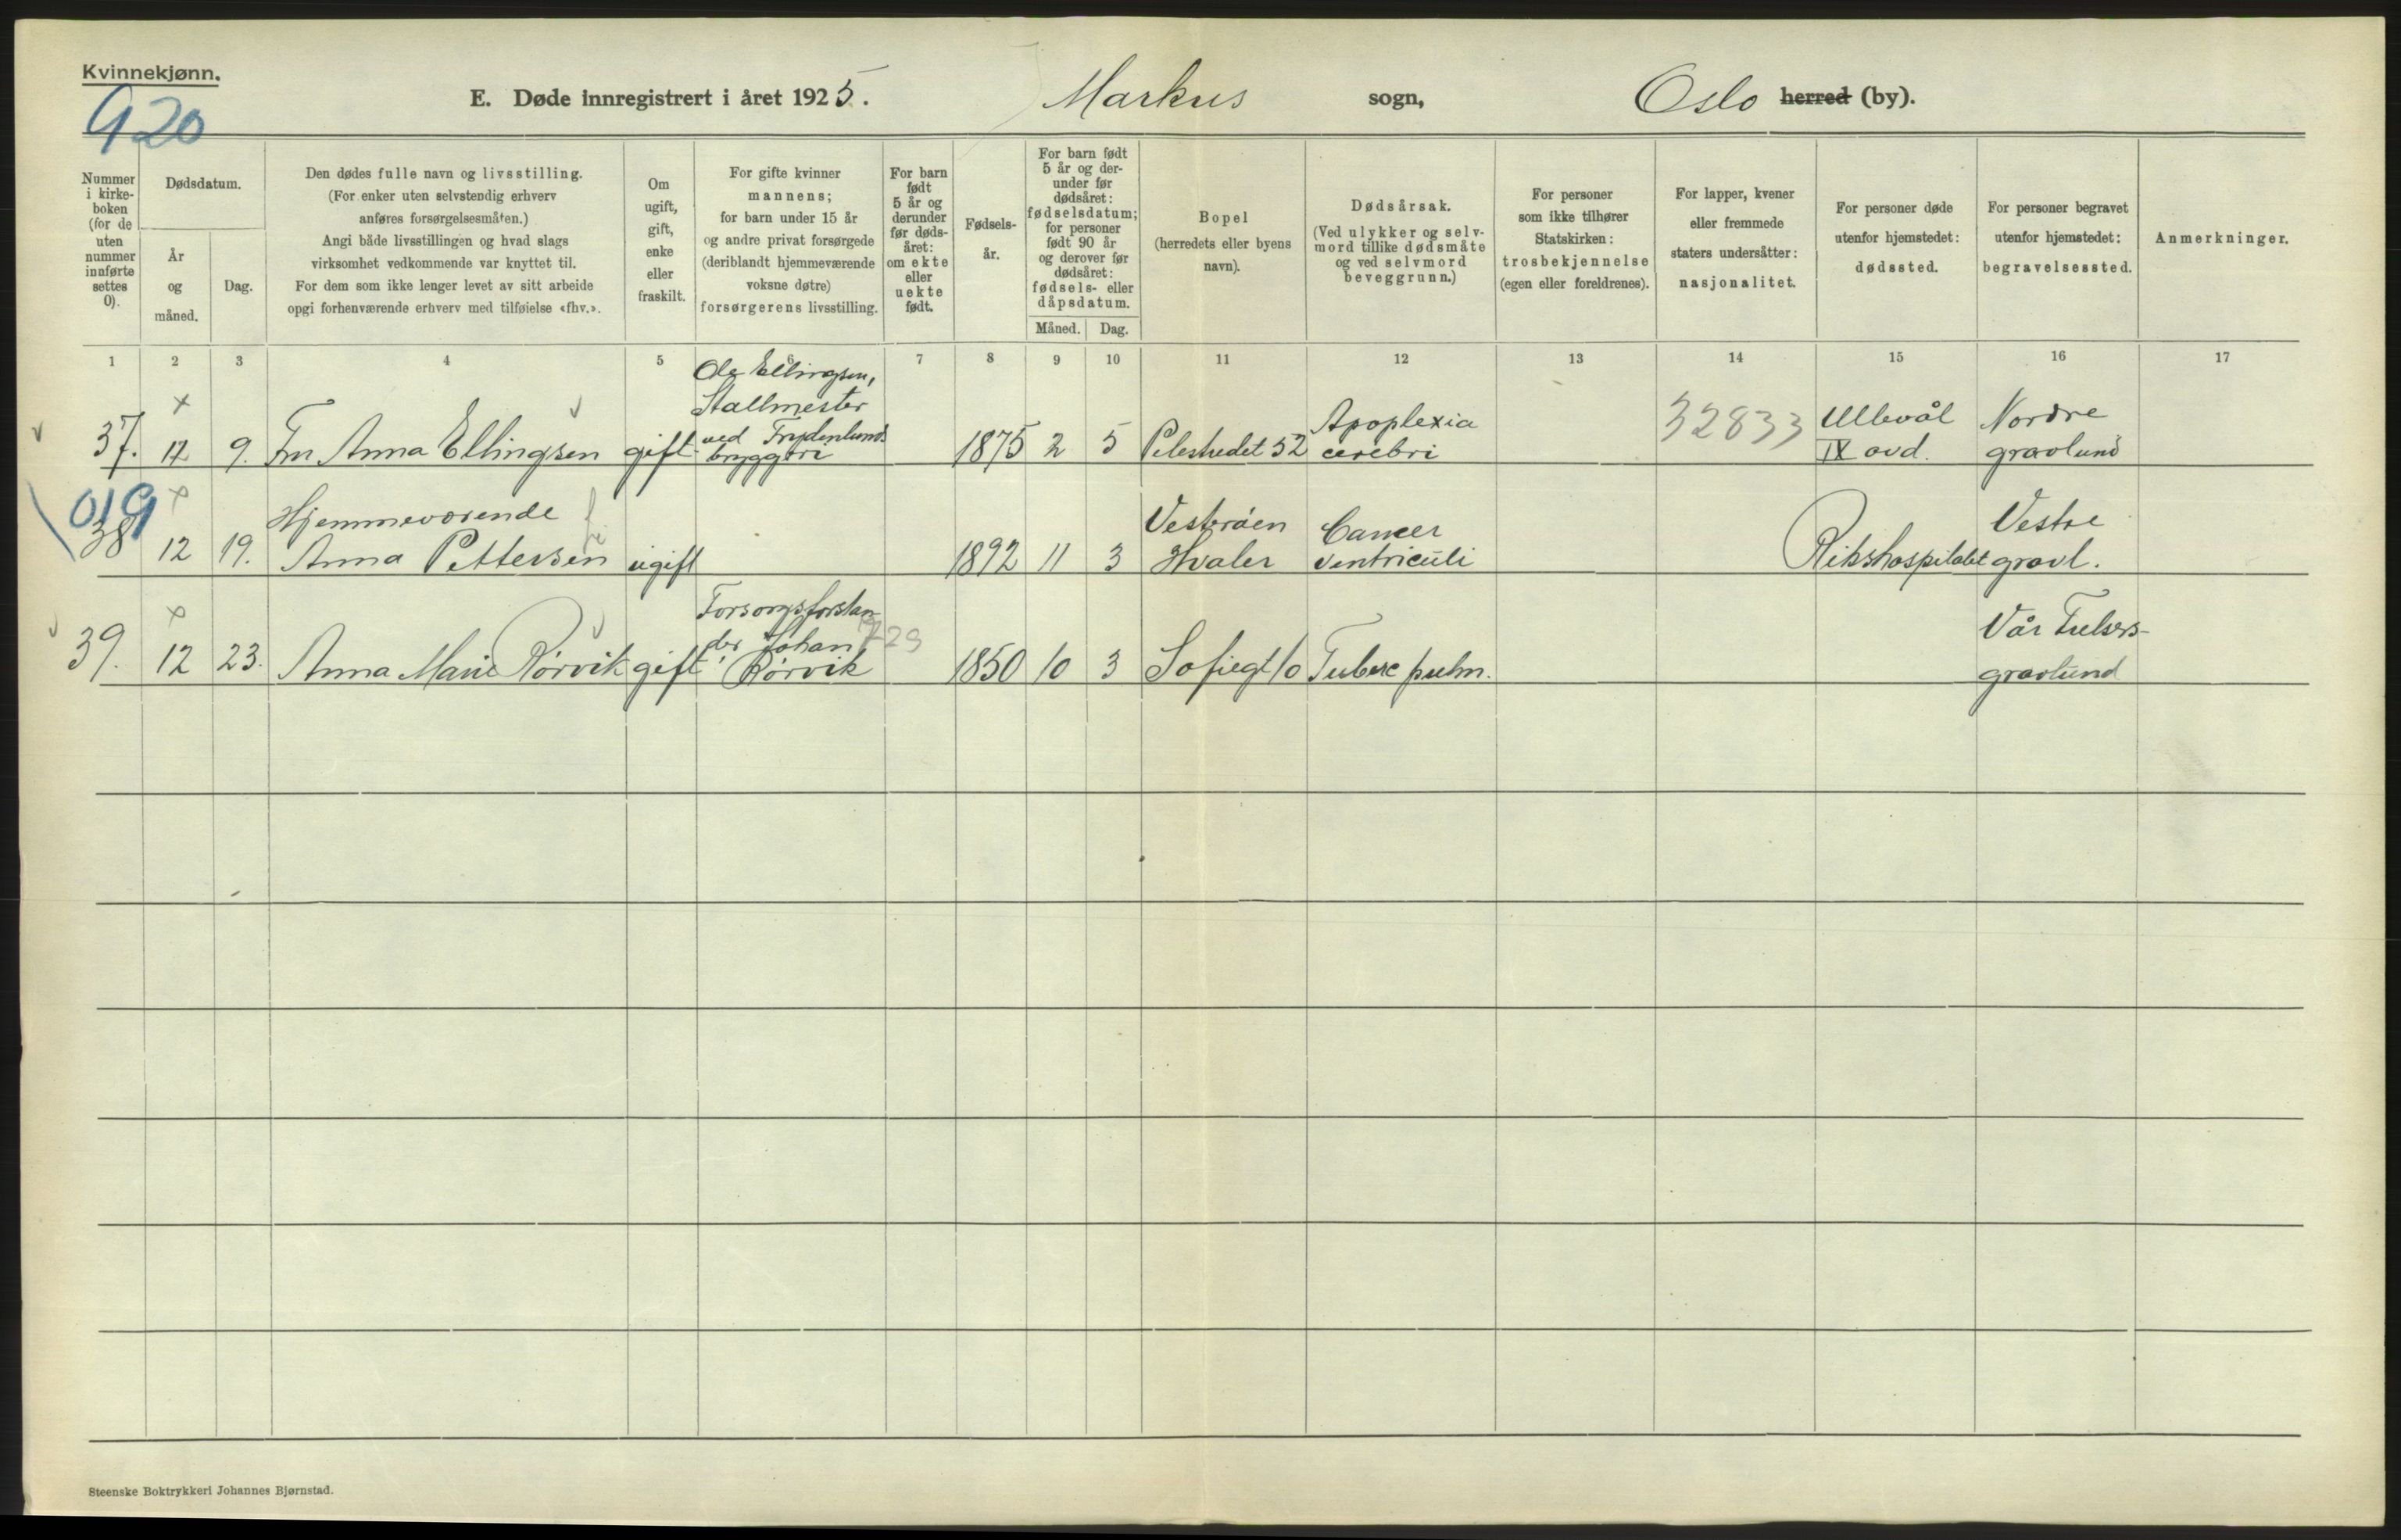 Kvinnekjønn.
920
E. Døde innregistrert i året 1925. Markus sogn, Oslo herred (by).
Nummer i kirke-boken (for de uten nummer innførte settes 0).
Dødsdatum.
År og måned.
Dag.
Den dødes fulle navn og livsstilling.
(For enker uten selvstendig erhverv
anføres forsørgelsesmåten.)
Angi både livsstillingen og hvad slags
virksomhet vedkommende var knyttet til.
For dem som ikke lenger levet av sitt arbeide
opgi forhenværende erhverv med tilføielse «fhv.».
Om
ugift,
gift,
enke
eller
fraskilt.
For gifte kvinner
mannens;
for barn under 15 år
og andre privat forsørgede
(deriblandt hjemmeværende
voksne døtre)
forsørgerens livsstilling.
For barn
født
5 år og
derunder
før døds-
året:
om ekte
eller
uekte
født.
Fødsels-
år.
For barn født
5 år og der-
under før
dødsåret:
fødselsdatum;
for personer
født 90 år
og derover før
dødsåret:
fødsels- eller
dåpsdatum.
Måned. Dag.
Bopel
(herredets eller byens
navn).
Dødsårsak.
(Ved ulykker og selv-
mord tillike dødsmåte
og ved selvmord
beveggrunn.)
For personer
som ikke tilhører
Statskirken:
trosbekjennelse
(egen eller foreldrenes).
For lapper, kvener
eller fremmede
staters undersåtter:
nasjonalitet.
For personer døde
utenfor hjemstedet:
dødssted.
For personer begravet
utenfor hjemstedet:
begravelsessted.
Anmerkninger.
1 2 3 4 5 6 7 8 9 10 11 12 13 14 15 16 17
37. 12 9. Fru Anna Ellingsen gift
Ole Ellingsen,
Stallmester
ved Frydenlunds
bryggeri
1875 2 5 Pilestredet 52
Apoplexia
cerebri
32833
Ullevål
IX avd.
Nordre
gravlund
019
38 12 19.
Hjemmeværende
Anna Pettersen ugift
1892 11 3
Vesterøen
Hvaler
Cancer
ventriculi
Rikshospitalet
Vestre
gravl.
39. 12 23. Anna Marie Rørvik gift
Forsorgsforstan-
der Johan
Rørvik
729
1850 10 3 Sofiegt 10 Tuberc pulm.
Vår Frelsers-
gravlund
Steenske Boktrykkeri Johannes Bjørnstad.